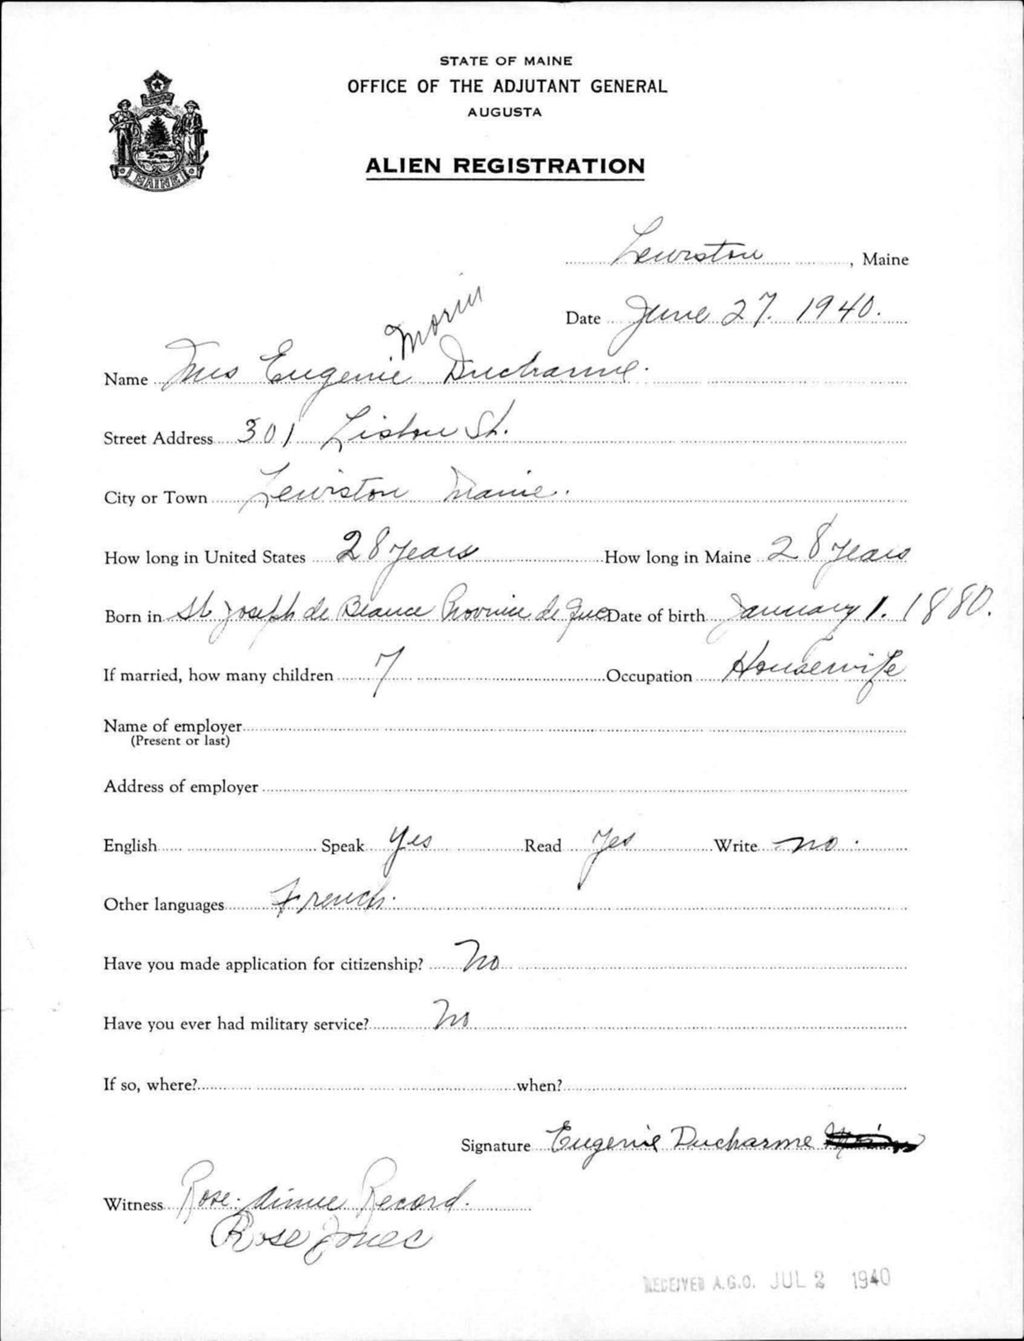 STATE OF MAINE
OFFICE OF THE ADJUTANT GENERAL
AUGUSTA
MAINE
ALIEN REGISTRATION
Lewiston, Maine
Date June 27. 1940.
Morin
Name Mrs Eugenie Ducharme.
Street Address 301 Lisbon St.
City or Town Lewiston Maine.
How long in United States 28 years How long in Maine 28 years
Born in St Joseph de Beauce Province de Que Date of birth January 1. 1880.
If married, how many children 7 Occupation Housewife
Name of employer
(Present or last)
Address of employer
English Speak Yes Read Yes Write no.
Other languages French.
Have you made application for citizenship? No
Have you ever had military service? No
If so, where? when?
Signature Eugenie Ducharme
Witness Rose-Aimee Record.
Rose Jones
RECEIVED A.G.O. JUL 2 1940